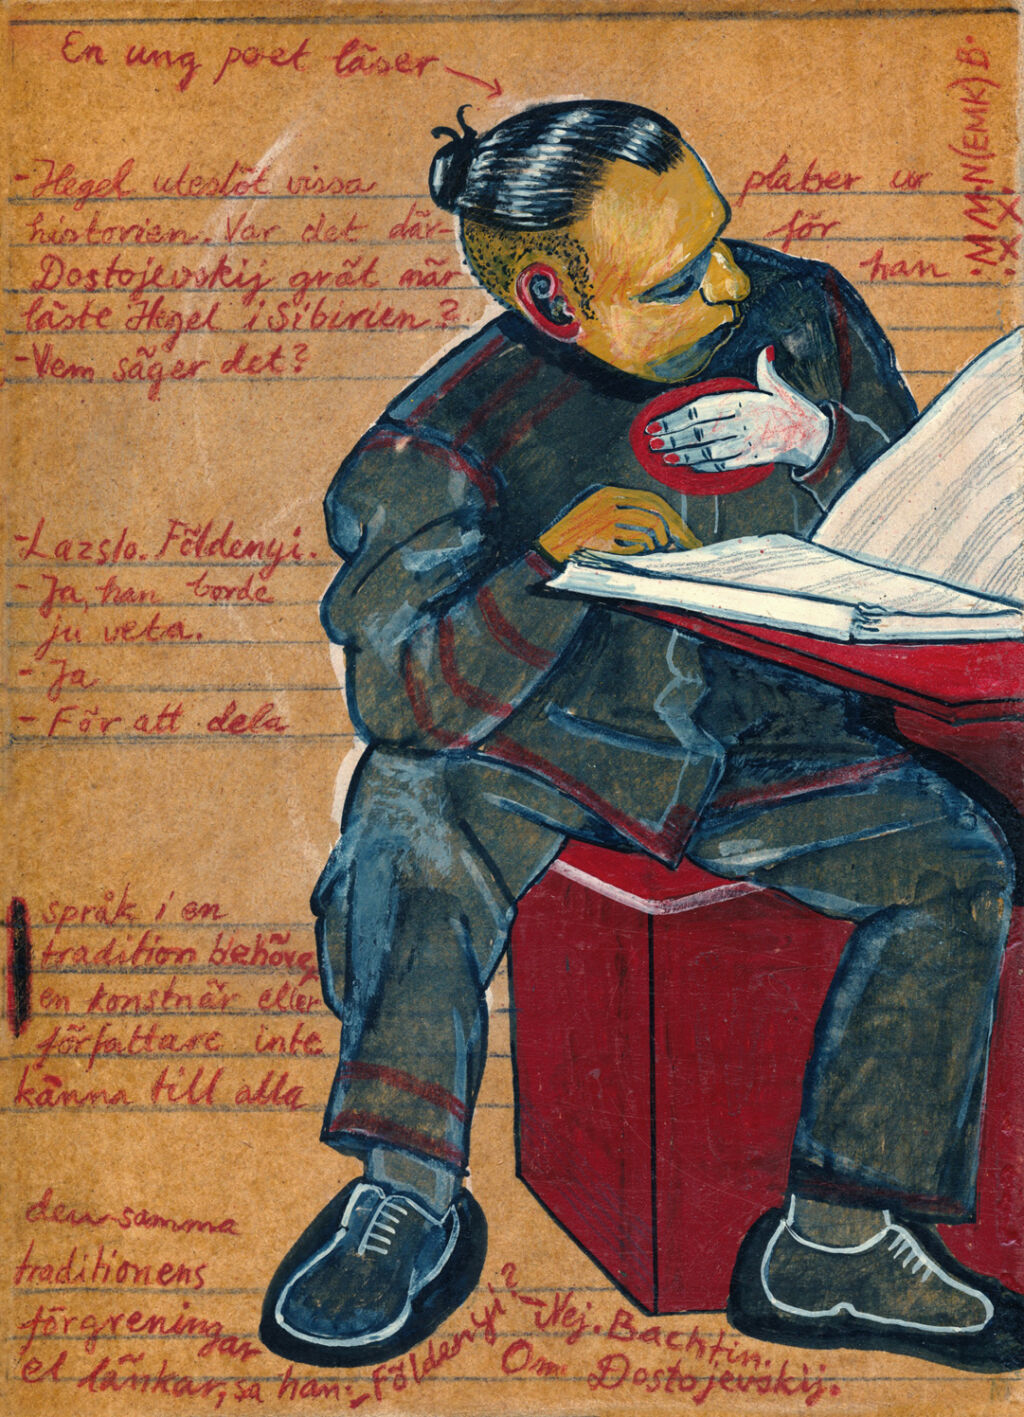 En ung poet läser
-Hegel uteslöt vissa platser ur
historien. Var det därför
Dostojevskij grät när han
läste Hegel i Sibirien?
-Vem säger det?
-Lazslo. Földenyi.
-Ja, han borde
ju veta.
-Ja
-För att dela
språk i en
tradition behöver
en konstnär eller
författare inte
känna till alla
den samma
traditionens
förgreningar
el länkar, sa han.
-Földenyi?
-Nej. Bachtin.
Om Dostojevskij.